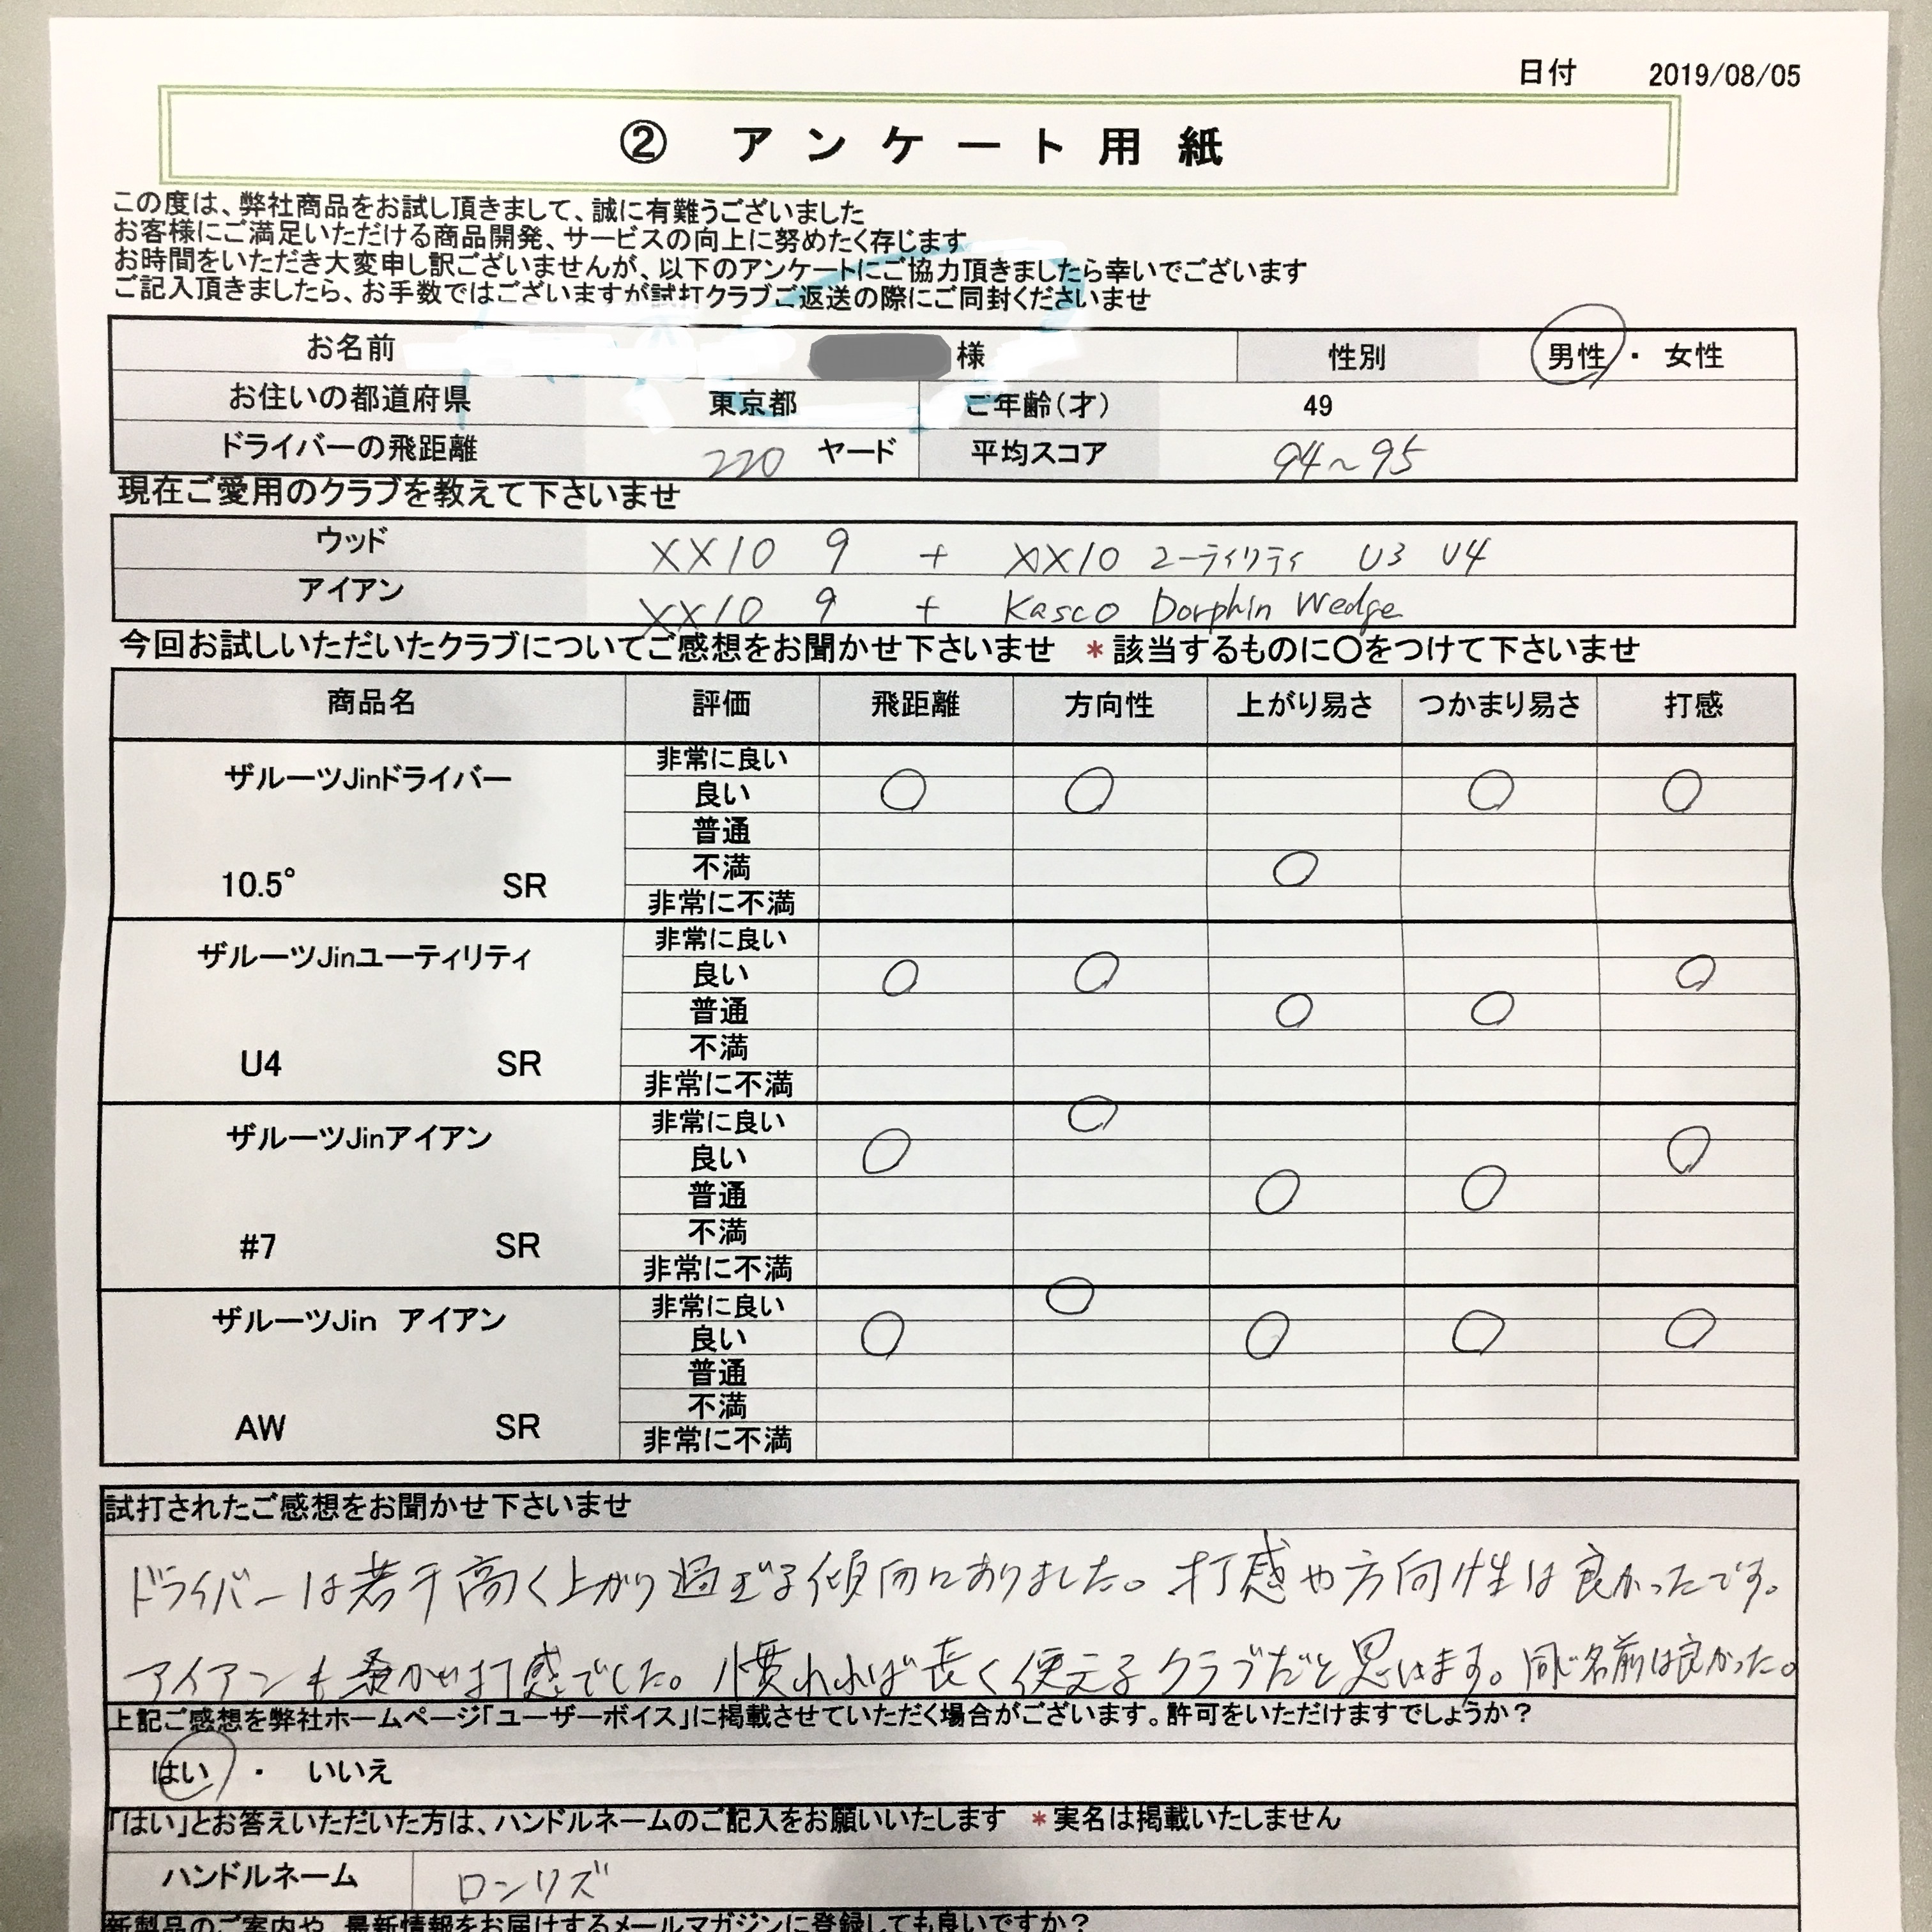 日付 2019/08/05
② アンケート用紙
この度は、弊社商品をお試し頂きまして、誠に有難うございました
お客様にご満足いただける商品開発、サービスの向上に努めたく存じます
お時間をいただき大変申し訳ございませんが、以下のアンケートにご協力頂きましたら幸いでございます
ご記入頂きましたら、お手数ではございますが試打クラブご返送の際にご同封くださいませ
お名前 様 性別 男性 ・ 女性
お住いの都道府県 東京都 ご年齢(才) 49
ドライバーの飛距離 220 ヤード 平均スコア 94~95
現在ご愛用のクラブを教えて下さいませ
ウッド XX10 9 + XX10 ユーティリティ U3 U4
アイアン XX10 9 + Kasco Dorphin Wedge
今回お試しいただいたクラブについてご感想をお聞かせ下さいませ *該当するものに〇をつけて下さいませ
商品名 評価 飛距離 方向性 上がり易さ つかまり易さ 打感
ザルーツJinドライバー
10.5° SR
非常に良い
良い ○ ○ ○ ○
普通
不満 ○
非常に不満
ザルーツJinユーティリティ
U4 SR
非常に良い
良い ○ ○ ○
普通 ○ ○
不満
非常に不満
ザルーツJinアイアン
#7 SR
非常に良い ○
良い ○ ○
普通 ○ ○
不満
非常に不満
ザルーツJin アイアン
AW SR
非常に良い ○
良い ○ ○ ○ ○
普通
不満
非常に不満
試打されたご感想をお聞かせ下さいませ
ドライバーは若干高く上がり過ぎる傾向にありました。打感や方向性は良かったです。
アイアンも 打感でした。慣れれば長く使えるクラブだと思います。同じ名前は良かった。
上記ご感想を弊社ホームページ「ユーザーボイス」に掲載させていただく場合がございます。許可をいただけますでしょうか?
はい ・ いいえ
「はい」とお答えいただいた方は、ハンドルネームのご記入をお願いいたします *実名は掲載いたしません
ハンドルネーム ロンリズ
新製品のご案内や、最新情報をお届けするメールマガジンに登録しても良いですか?